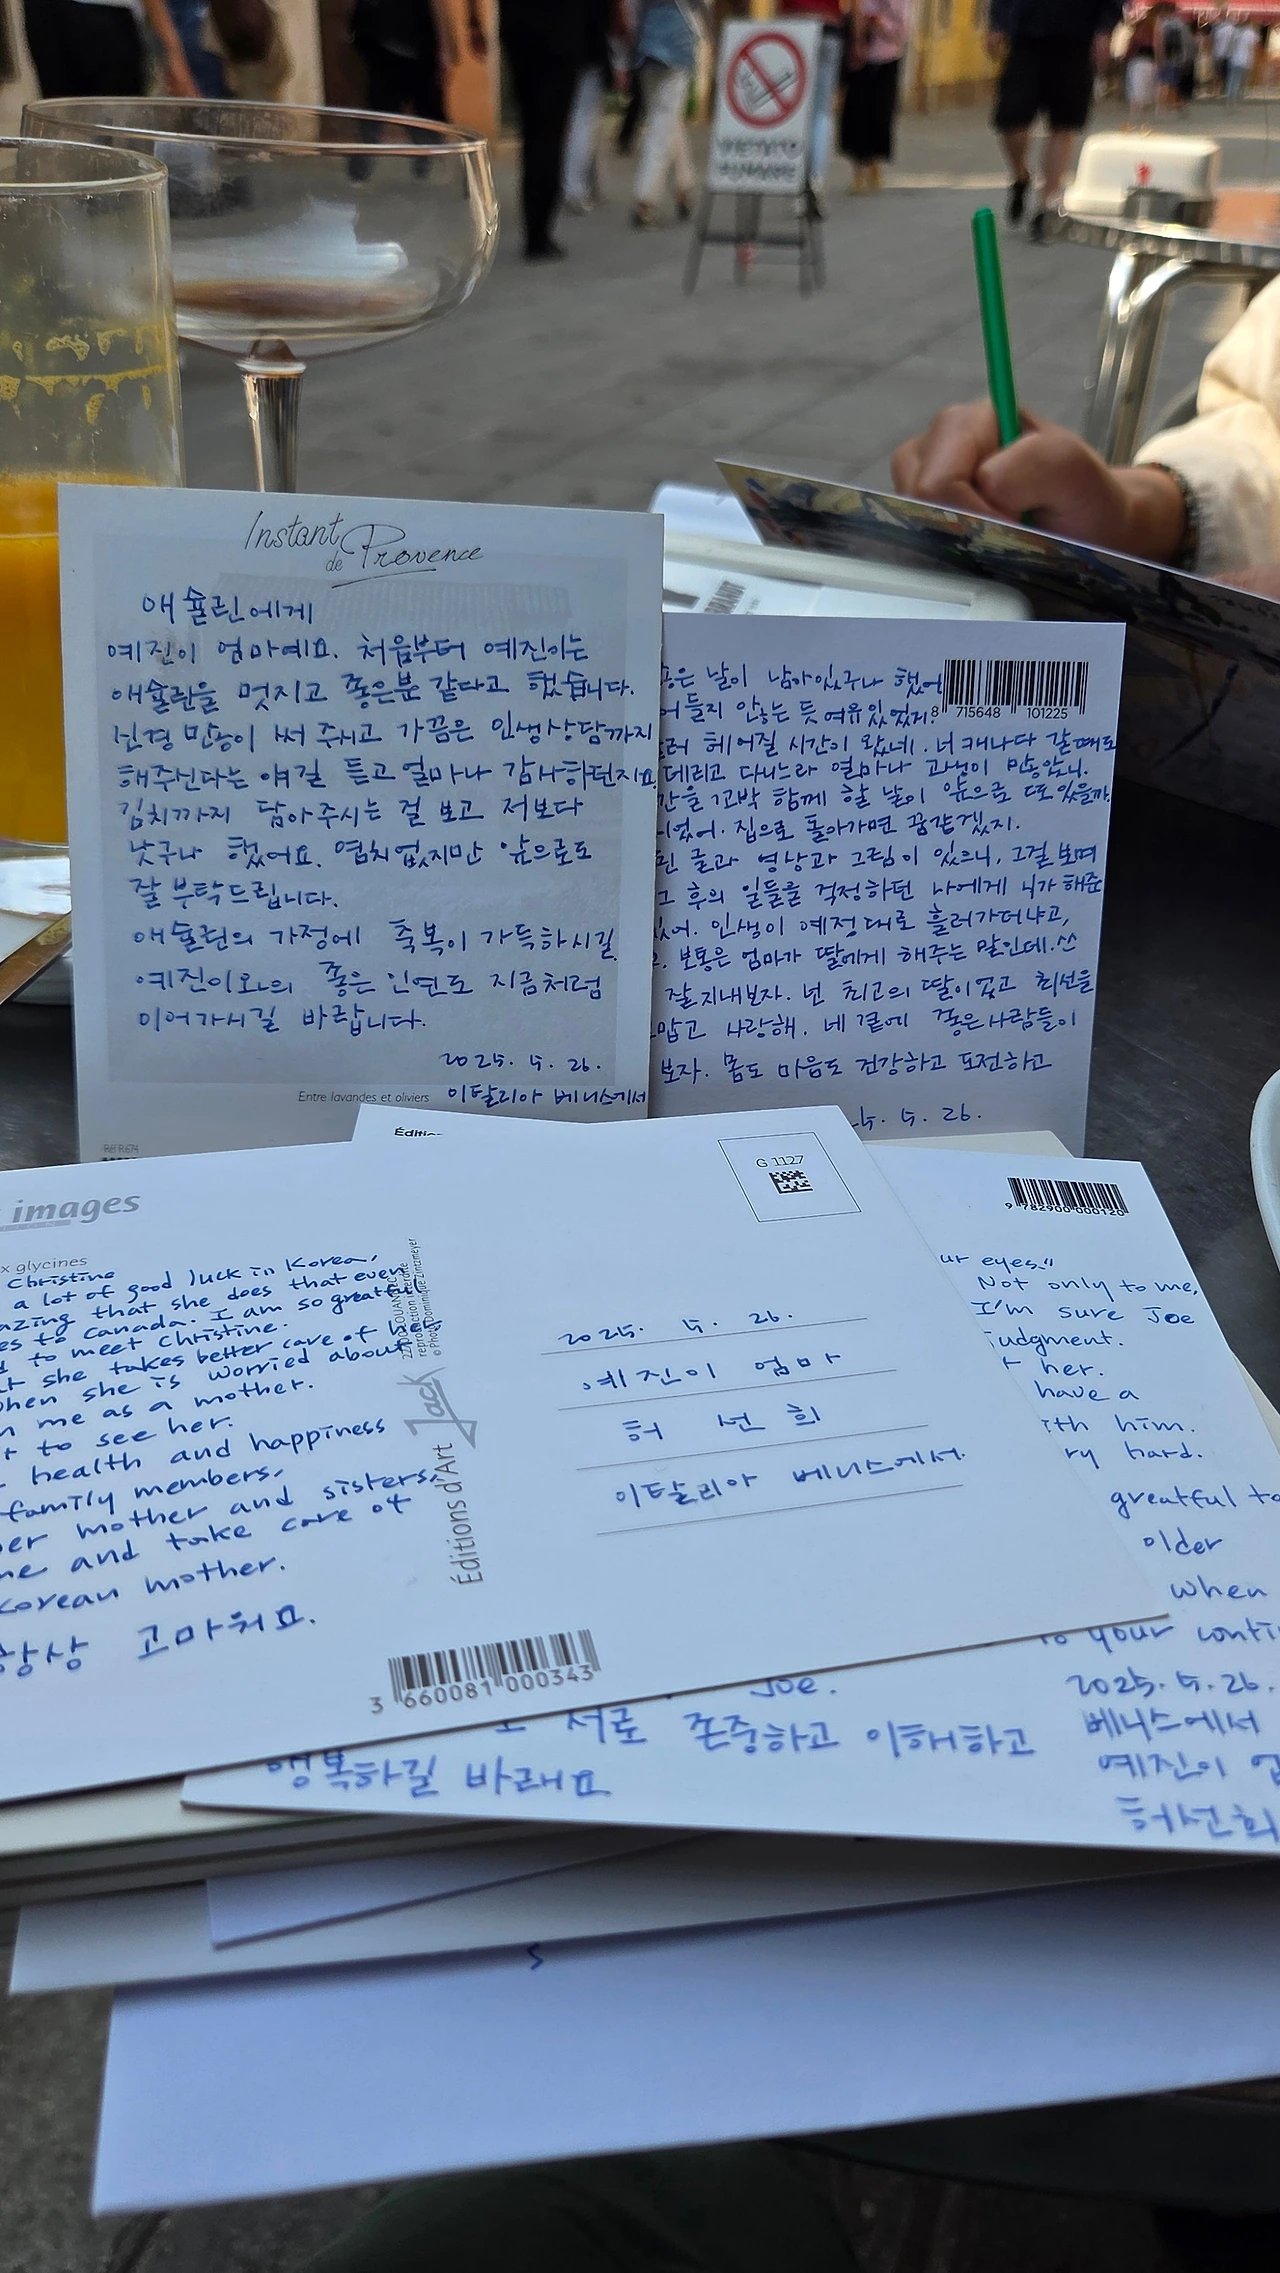 VIETATO
FUMARE
Instant
de Provence
애슐린에게
예진이 엄마예요. 처음부터 예진이는
애슐린을 멋지고 좋은분 같다고 했습니다.
신경 많이 써 주시고 가끔은 인생상담까지
해주신다는 얘길 듣고 얼마나 감사하던지요.
김치까지 담아주시는 걸 보고 저보다
낫구나 했어요. 염치없지만 앞으로도
잘 부탁드립니다.
애슐린의 가정에 축복이 가득하시길
예진이와의 좋은 인연도 지금처럼
이어가시길 바랍니다.
2025. 5. 26.
Entre lavandes et oliviers 이탈리아 베니스에서
좋은 날이 남아있구나 했어
들지 않는 듯 여유있었지.
8 715648 101225
헤어질 시간이 왔네. 너 캐나다 갈때도
데리고 다니느라 얼마나 고생이 많았니.
꼬박 함께 할 날이 앞으로 또 있을까.
집으로 돌아가면 꿈같겠지.
글과 영상과 그림이 있으니, 그걸 보며
그 후의 일들을 걱정하던 나에게 니가 해준
인생이 예정대로 흘러가더냐고,
보통은 엄마가 딸에게 해주는 말인데.
잘 지내보자. 넌 최고의 딸이었고 최선을
사랑해. 네 곁에 좋은사람들이
보자. 몸도 마음도 건강하고 도전하고
5. 26.
images
x glycines
Christine
a lot of good luck in Korea,
that she does that even
to Canada. I am so grateful
to meet Christine.
she takes better care of her
when she is worried about
me as a mother.
to see her.
health and happiness
family members.
mother and sisters,
and take care of
korean mother.
항상 고마워요.
reproduction interdite
© Photo Dominique Zintzmeyer
Éditions d'Art Jack
3 660081 000343
G 1127
2025. 5. 26.
예진이 엄마
허 선 희
이탈리아 베니스에서.
9 782900 000120
eyes."
Not only to me,
I'm sure Joe
judgment.
her.
have a
him.
hard.
greatful to
older
when
to your
Joe.
서로 존중하고 이해하고
행복하길 바래요
2025. 5. 26.
베니스에서
예진이
허선희